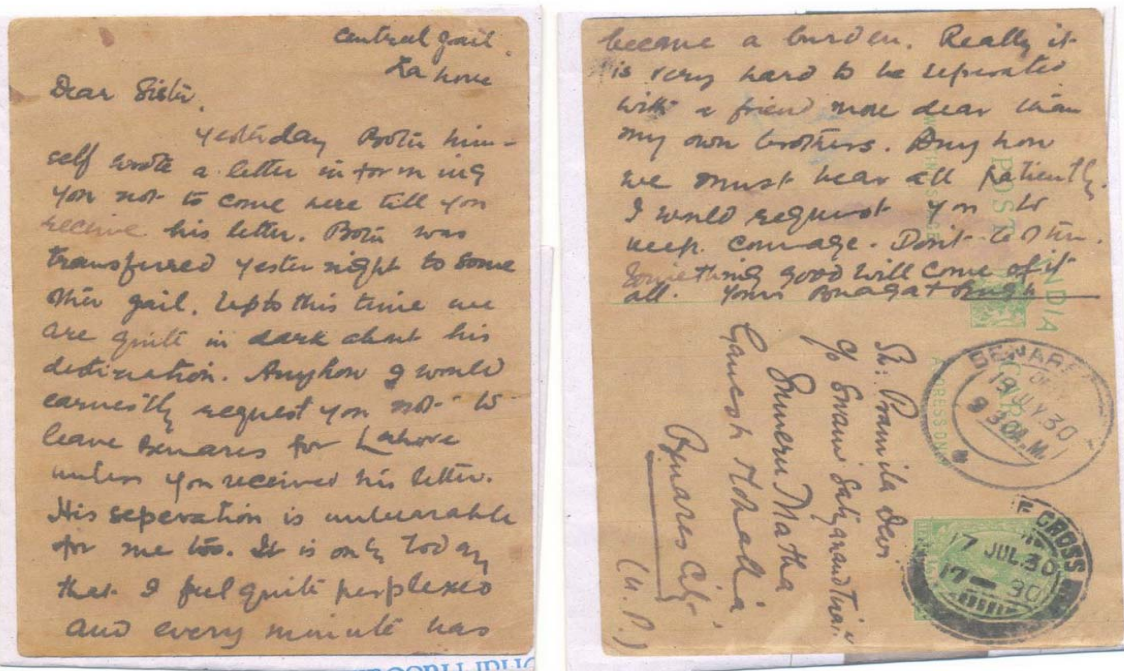 Central Jail.
Lahore
Dear Sister,
Yesterday Bottu him-
self wrote a letter informing
you not to come here till you
receive his letter. Bottu was
transferred yester night to some
other jail. Upto this time we
are quite in dark about his
destination. Anyhow I would
earnestly request you not to
leave Benares for Lahore
unless you received his letter.
His seperation is unbearable
for me too. It is only today
that I feel quite perplexed
and every minute has
became a burden. Really it
is very hard to be seperated
with a friend more dear than
my own brothers. Any how
we must bear all patiently.
I would request you to
keep courage. Don't
Something good will come of it
all. Yours Bhagat Singh
POST CARD
INDIA
ADDRESS ONLY
Sh: Pramila Devi
c/o Swami
Sumeru Matha
Ganesh Mohalla
Benares City
(U.P.)
BENARES
19 JLY 30
9 30 A.M.
CROSS
17 JUL. 30
17 - 30